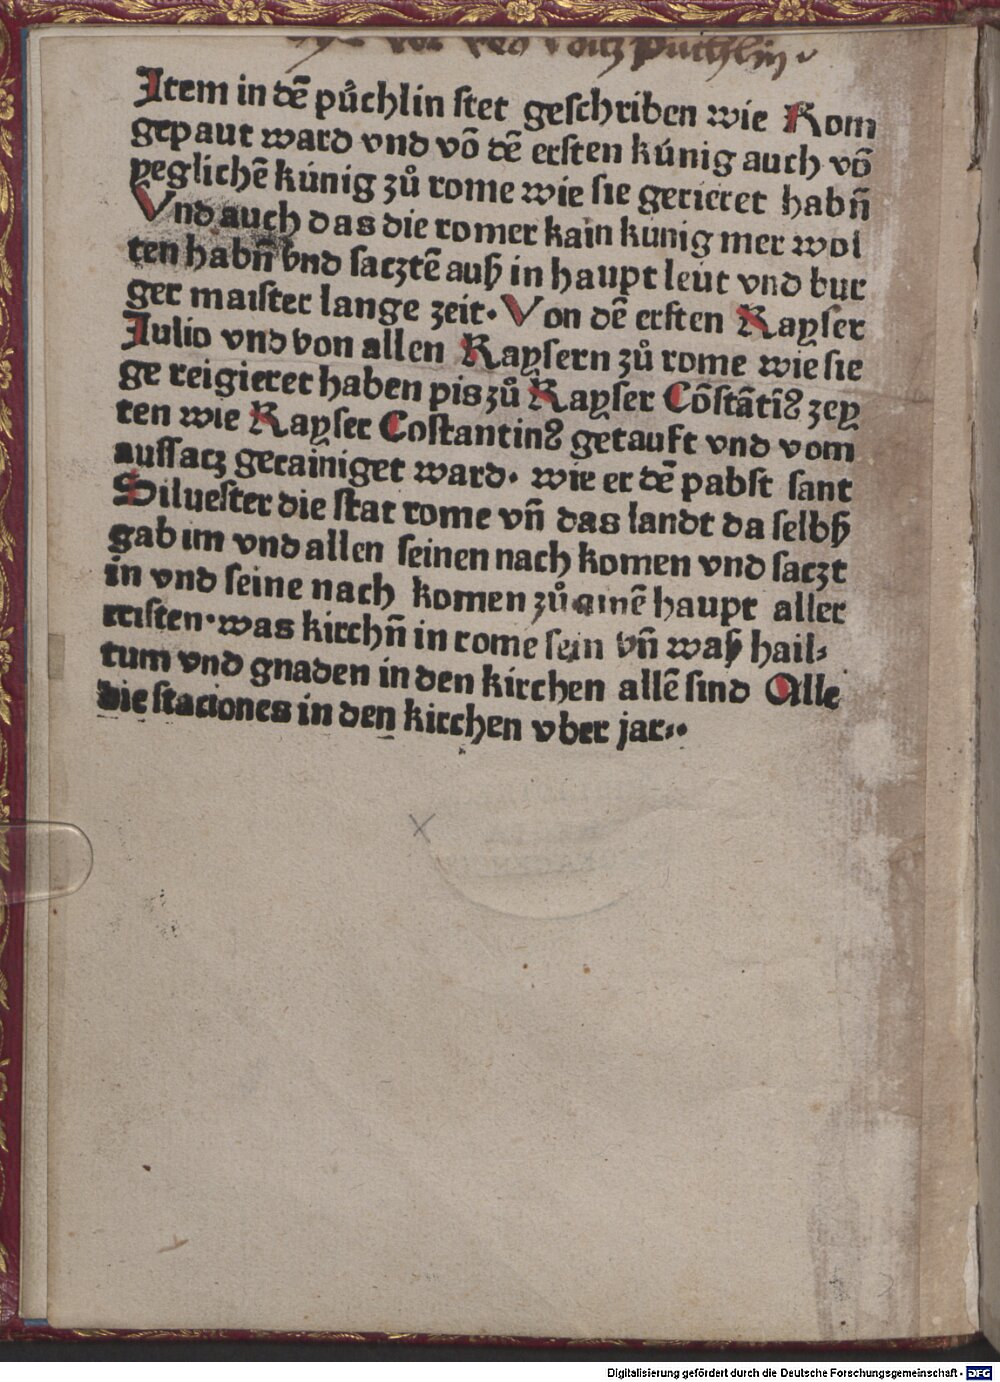 puchlin
Item in dē půchlin stet geschriben wie Rom
gepaut ward vnd vō dē ersten kúnig auch vō
yeglichē kúnig zů rome wie sie gerieret habn̄
Vnd auch das die romer kain kunig mer wol
ten habn̄ vnd sacztē auß in haupt leut vnd bur
ger maister lange zeit· Von dē ersten Kayser
Iulio vnd von allen Kaysern zů rome wie sie
ge reigieret haben pis zů Kayser Cōstātīꝰ zey
ten wie Kayser Costantinꝰ getauft vnd vom
aussacz gerainiget ward· wie er dē pabst sant
Siluester die stat rome vn̄ das landt da selbß
gab im vnd allen seinen nach komen vnd saczt
in vnd seine nach komen zů ainē haupt aller
cristen· was kirchn̄ in rome sein vn̄ waß hail⸗
tum vnd gnaden in den kirchen allē sind Alle
die staciones in den kirchen vber jar⸗·
Digitalisierung gefördert durch die Deutsche Forschungsgemeinschaft - DFG